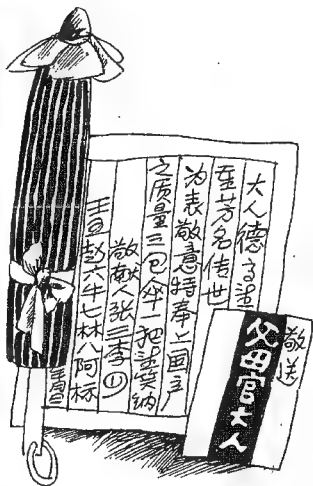 大人德高望
重芳名传世
为表敬意特奉上国产
之质量三包伞一把望笑纳
敬献人张三李四
王五赵六牛七林八阿标
敬送
父母官大人